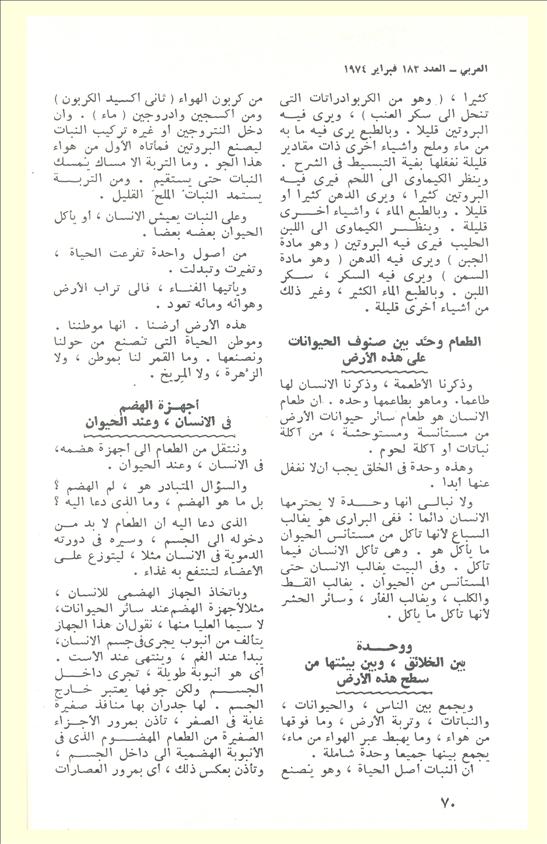 العربي – العدد ١٨٣ فبراير ١٩٧٤
كثيرا ، ( وهو من الكربوادراتات التى
تنحل الى سكر العنب ) ، ويرى فيــه
البروتين قليلا . وبالطبع يرى فيه ما به
من ماء وملح وأشياء أخرى ذات مقادير
قليلة نغفلها بغية التبسيط فى الشرح .
وينظر الكيماوى الى اللحم فيرى فيــه
البروتين كثيرا ، ويرى الدهن كثيرا أو
قليلا . وبالطبع الماء ، وأشياء أخــرى
قليلة . وينظــر الكيماوى الى اللبن
الحليب فيرى فيه البروتين ( وهو مادة
الجبن ) ويرى فيه الدهن ( وهو مادة
السمن ) ويرى فيه السكر ، سـكر
اللبن . وبالطبع الماء الكثير ، وغير ذلك
من أشياء أخرى قليلة .
الطعام وحَّد بين صنوف الحيوانات
على هذه الأرض
وذكرنا الأطعمة ، وذكرنا الانسان لها
طاعما. وماهو بطاعمها وحده . ان طعام
الانسان هو طعام سائر حيوانات الأرض
من مستأنسة ومستوحشة ، من آكلة
نباتات أو آكلة لحوم .
وهذه وحدة فى الخلق يجب ان لا نغفل
عنها أبدا .
ولا نبالـى انها وحــدة لا يحترمها
الانسان دائما : ففى البرارى هو يغالب
السباع لأنها تأكل من مستأنس الحيوان
ما يأكل هو . وهى تأكل الانسان فيما
تأكل . وفى البيت يغالب الانسان حتى
المستأنس من الحيوان . يغالب القــط
والكلب ، ويغالب الفأر ، وسائر الحشر
لأنها تأكل ما يأكل .
ووحــدة
بين الخلائق ، وبين بيئتها من
سطح هذه الأرض
ويجمع بين الناس ، والحيوانات ،
والنباتات ، وتربة الأرض ، وما فوقها
من هواء ، وما يهبط عبر الهواء من ماء،
يجمع بينها جميعا وحدة شاملة .
ان النبات أصل الحياة ، وهو يَصنع
من كربون الهواء ( ثانى أكسيد الكربون )
ومن أكسجين وادروجين ( ماء ) . وان
دخل النتروجين أو غيره تركيب النبات
ليصنع البروتين فمأتاه الأول من هواء
هذا الجو . وما التربة الا مساك يَمسك
النبات حتى يستقيم . ومن التربــة
يستمد النبات الملح القليل .
وعلى النبات يعيش الانسان ، أو يأكل
الحيوان بعضه بعضا .
من أصول واحدة تفرعت الحياة ،
وتغيرت وتبدلت .
ويأتيها الفنــاء ، فالى تراب الأرض
وهوائه ومائه تعود .
هذه الأرض أرضنا . انها موطننا .
وموطن الحياة التى تَصنع من حولنا
ونصنعها . وما القمر لنا بموطن ، ولا
الزُهَرة ، ولا المِريخ .
أجهــزة الهضم
فى الانسان ، وعند الحيوان
وننتقل من الطعام الى أجهزة هضمه،
فى الانسان ، وعند الحيوان .
والسؤال المتبادر هو ، لم الهضم ؟
بل ما هو الهضم ، وما الذى دعا اليه ؟
الذى دعا اليه ان الطعام لا بد مــن
دخوله الى الجسم ، وسيره فى دورته
الدموية فى الانسان مثلا ، ليتوزع علــى
الأعضاء لتنتفع به غذاء .
وباتخاذ الجهاز الهضمى للانسان ،
مثلالأجهزة الهضم عند سائر الحيوانات،
لا سيما العليا منها ، نقول ان هذا الجهاز
يتألف من أنبوب يجرى فى جسم الانسان،
يبدأ عند الفم ، وينتهى عند الاست .
أى هو أنبوبة طويلة ، تجرى داخــل
الجســم ولكن جوفها يعتبر خــارج
الجسم . لها جدران بها منافذ صغيرة
غاية فى الصغر ، تأذن بمرور الأجــزاء
الصغيرة من الطعام المهضــوم الذى فى
الأنبوبة الهضمية الى داخل الجسـم ،
وتأذن بعكس ذلك ، أى بمرور العصارات
٧٠